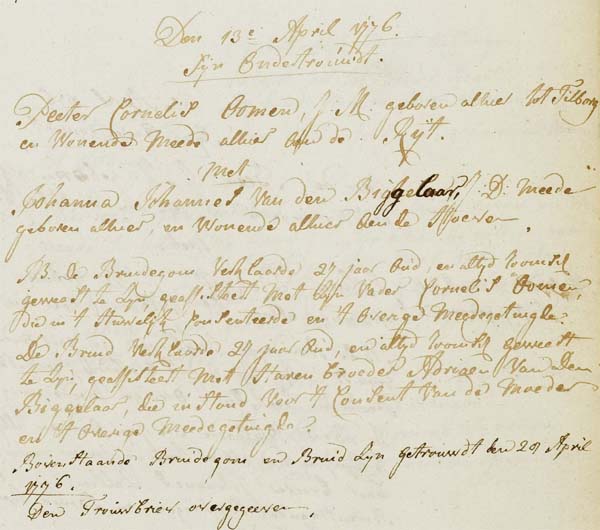 Den 13e April 1776.
Syn Ondertrouwdt.
Peeter Cornelis Oomen, J: M: geboren alhier tot Tilborg
en Wonende Meede alhier aen de Ryt.
Met
Johanna Johannes Van den Biggelaar, J: D: Meede
geboren alhier, en Wonende alhier aen de Hoeven
NB: de Bruidegom Verklaarde 27 jaar Oud, en altyd Roomsch
geweest te Zyn geassisteert Met Zijn Vader Cornelis Oomen,
die in 't Huwelijk Consenteerde en 't Overige Meedegetuigde.
De Bruid Verklaarde 27 jaar Oud, en altyd Roomsch geweest
te Zyn, geassisteert Met Haren broeder Adriaen Van den
Biggelaar, die instond Voor 't Consent Van de Moeder
en 't Overige Meedegetuigde
Bovenstaande Bruidegom en Bruid Zyn getrouwdt den 28 April
1776.
Den Trouwbrief overgegeeven.